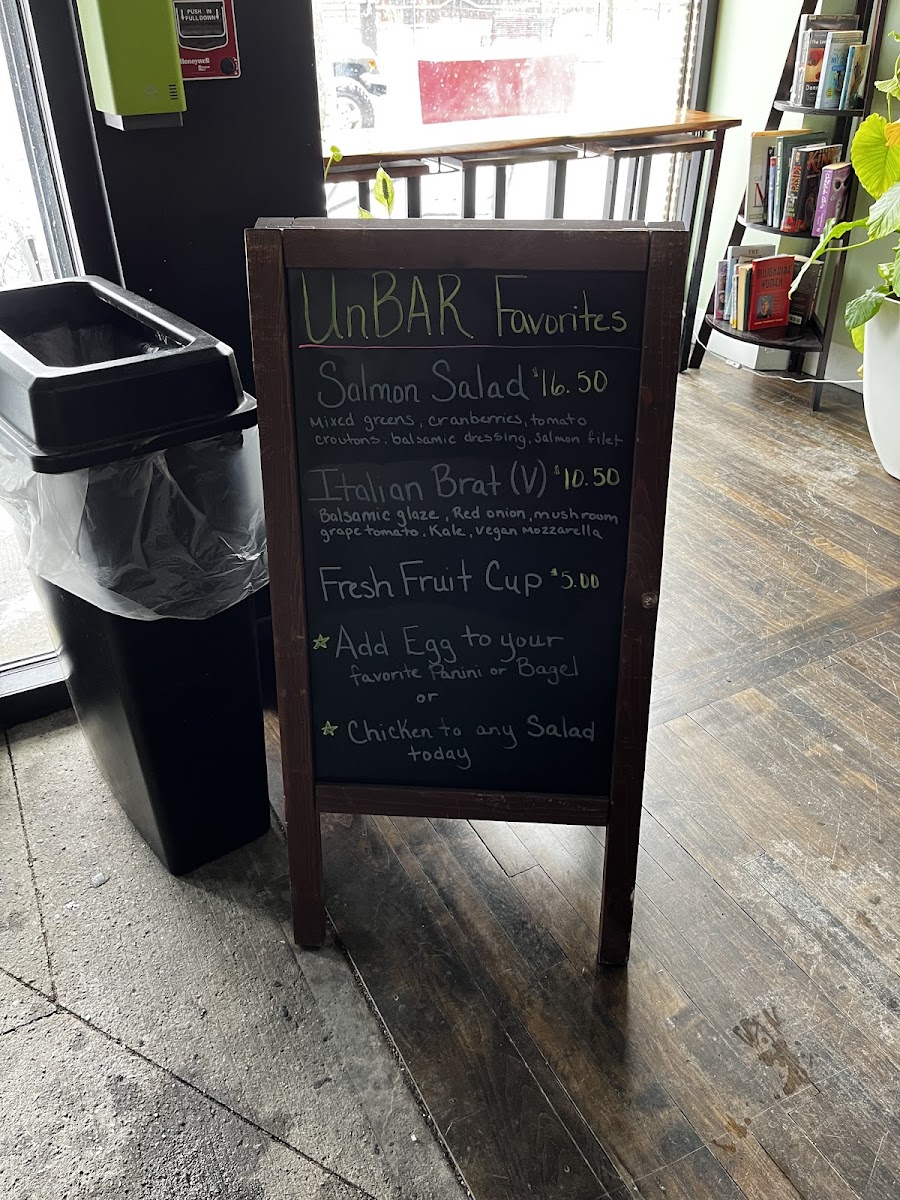 PUSH IN
PULL DOWN
Honeywell
UnBAR Favorites
Salmon Salad $16.50
Mixed greens, cranberries, tomato
croutons, balsamic dressing, salmon filet
Italian Brat (V) $10.50
Balsamic glaze, Red onion, mushroom
grape tomato, Kale, vegan Mozzarella
Fresh Fruit Cup $5.00
Add Egg to your
favorite Panini or Bagel
or
Chicken to any Salad
today